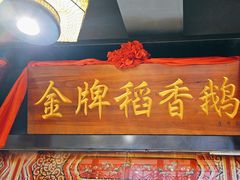 金牌稻香鹅